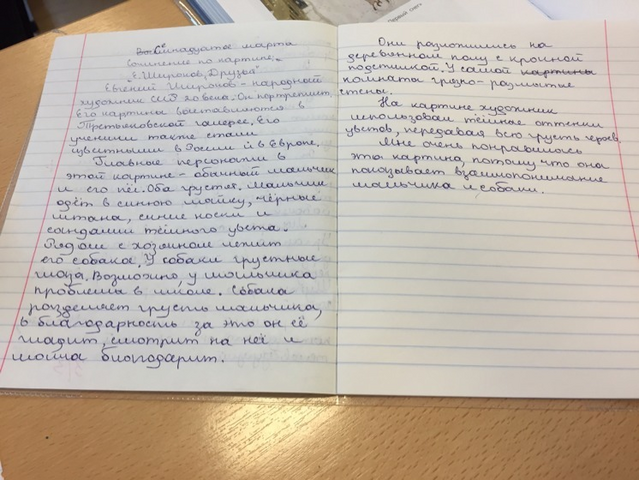 Семнадцатое марта
Сочинение по картине
"Е.Широков, Друзья"
Евгений Широков - народный
художник СССР 20 века. Он портретист.
Его картины выставляются в
Третьяковской галерее. Его
ученики также стали
известными в России и в Европе.
Главные персонажи в
этой картине - обычный мальчик
и его пёс. Оба грустят. Мальчик
одет в синюю майку, чёрные
штаны, синие носки и
сандали тёмного цвета.
Рядом с хозяином лежит
его собака. У собаки грустные
глаза. Возможно, у мальчика
проблемы в школе. Собака
разделяет грусть мальчика,
в благодарность за это он её
гладит, смотрит на неё и
молча благодарит.
Они разложились на
деревянном полу с красной
подстилкой. У самой картины
комнаты грязно-размытые
стены.
На картине художник
использовал тёмные оттенки
цветов, передавая всю грусть героев.
Мне очень понравилась
эта картина, потому что она
показывает взаимопонимание
мальчика и собаки.
Первый снег